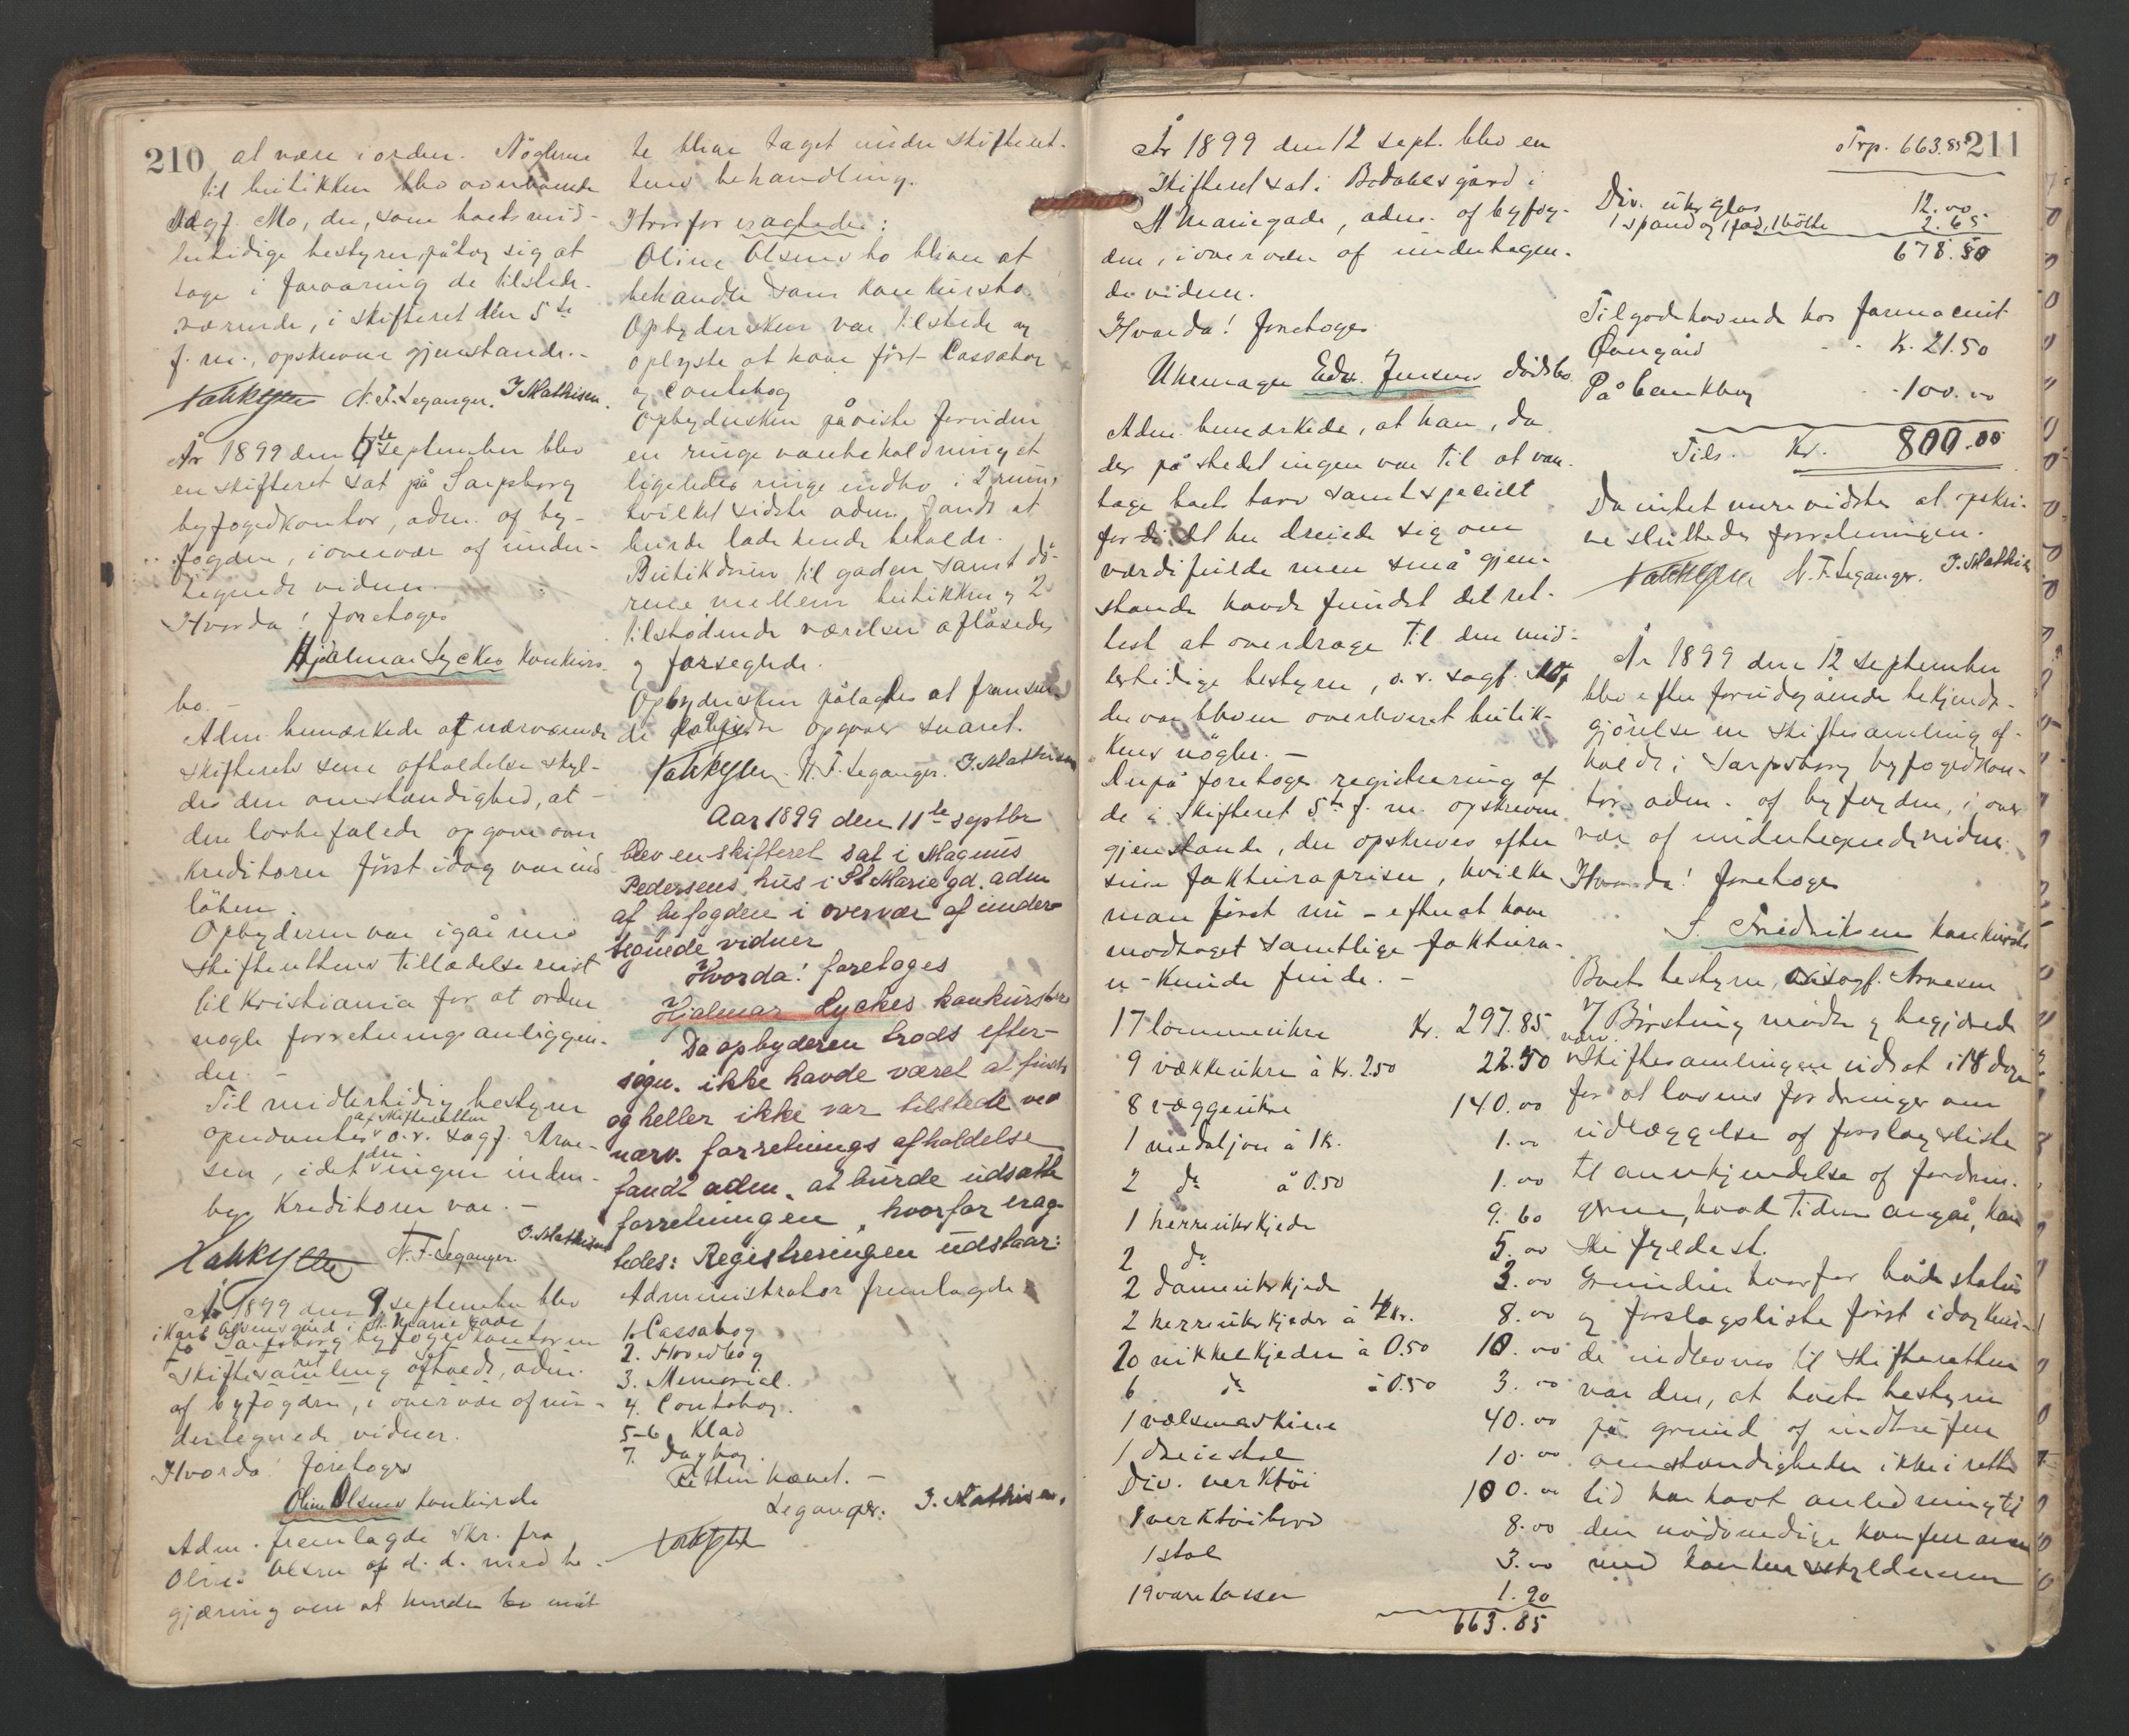 210
at være i orden. Nøglerne
til butikken blev overleveret
sagf. Mo, der, som boets mid-
lertidige bestyrer, påtog sig at
tage i forvaring de tilstede-
værende, i skifteret den 5te
f. m., opskrevne gjenstande. -
N. F. Leganger. J. Mathisen.
År 1899 den 7de september blev
en skifteret sat på Sarpsborg
byfogedkontor, adm. af by-
fogden, i overvær af under-
tegnede vidner.
Hvorda! foretoges
Hjalmar Lyckes konkurs-
bo. -
Adm. bemærkede at nærværende
skifterets sene afholdelse skyl-
des den omstændighed, at
den lovbefalede opgave over
kreditorer først idag var ind-
løben.
Opbyderen var igår med
skifterettens tilladelse reist
til Kristiania for at ordne
nogle forretningsanliggen-
der. -
Til midlertidig bestyrer
opnævntes af skifteretten o.r. sagf. Arne-
sen, idet der ingen inden-
bys kreditorer var. -
N. F. Leganger. J. Mathisen
År 1899 den 9 september blev
i Karl Olsens gård i St. Marie gade
på Sarpsborg byfogedkontor en
skiftesamling ret afholdt sat, adm.
af byfogden, i overvær af un-
dertegnede vidner.
Hvorda! foretoges
Oline Olsens konkursbo
Adm. fremlagde skr. fra
Oline Olsen af d. d. med be-
gjæring om at hendes bo måt-
te blive taget under skifteret-
tens behandling.
Hvorfor eragtedes:
Oline Olsens bo bliver at
behandle som konkursbo.
Opbydersken var tilstede og
oplyste at have ført Cassabog
og Contobog
Opbydersken påviste foruden
en ringe varebeholdning et
ligeledes ringe indbo i 2 rum,
hvilket sidste adm. fandt at
burde lade hende beholde.
Butikdøren til gaden samt dø-
rene mellem butikken og 2
tilstødende værelser aflåsedes
og forsegledes.
Opbydersken pålagdes at fremsen-
de lovbefalede opgaver snarest.
N. F. Leganger. J. Mathisen
Aar 1899 den 11te septbr
blev en skifteret sat i Magnus
Pedersens hus i St Marie gd. adm
af byfogden i overvær af under-
tegnede vidner
Hvorda! foretoges
Hjalmar Lyckes konkursbo
Da opbyderen trods efter-
søgn. ikke havde været at finde
og heller ikke var tilstede ved
nærv. forretnings afholdelse
fandt adm. at burde udsætte
forretningen, hvorfor erag-
tedes: Registreringen udstaar:
Administrator fremlagde
1. Cassabog
2. Hovedbog
3. Memorial.
4. Contobog.
5-6. Klad
7. Dagbog.
Retten hævet. -
Leganger. J. Mathisen.
År 1899 den 12 sept. blev en
skifteret sat i Bodahls gård i
St Mariegade, adm. af byfog-
den, i overvær af undertegne-
de vidner.
Hvorda! foretoges
Uhrmager Edv. Jensens dødsbo.
Adm. bemærkede, at han, da
der på stedet ingen var til at vare-
tage boets tarv samt specielt
fordi det her dreiede sig om
værdifulde men små gjen-
stande havde fundet det ret-
test at overdrage til den mid-
lertidige bestyrer, o. r. sagf. Mo,
der var bleven overleveret butik-
kens nøgler. -
Derpå foretoges registrering af
de i skifteret 5te f. m. opskrevne
gjenstande, der opskreves efter
sine fakturapriser, hvilke
man først nu - efter at have
modtaget samtlige faktura-
er - kunde finde. -
17 lommeuhre Kr. 297.85
9 vækkeuhre à Kr. 2.50 22.50
8 væggeuhre 140.00
1 medaljon à 1 Kr. 1.00
2 do à 0.50 1.00
1 herreuhrkjede 9.60
2 do 5.00
2 dameuhrkjede 3.00
2 herreuhrkjeder à 4 Kr. 8.00
20 nikkelkjeder à 0.50 10.00
6 do à 0.50 3.00
1 valsemaskine 40.00
1 dreiestol 10.00
Div. verktøi 100.00
1 verktøibord 8.00
1 stol 3.00
19 varekasser 1.90
663.85
211
Trp. 663.85
Div. uhrglas 12.00
1 spand og 1 fad, 1 bøtte 2.65
678.50
Tilgodehavende hos farmaceut
Øvergård Kr. 21.50
På bankbog - 100.00
Tils. Kr. 800.00
Da intet mere vidstes at opskri-
ve sluttedes forretningen.
N. F. Leganger. J. Mathisen
År 1899 den 12 september
blev efter forudgående bekjendt-
gjørelse en skiftesamling af-
holdt i Sarpsborg byfogedkon-
tor adm. af byfogden, i over-
vær af undertegnede vidner.
Hvorda! foretoges
S. Fredriksens konkursbo
Boets bestyrer, o.r.sagf. Arnesen
v/ Børsting mødte og begjærede
nærv. skiftesamlingen udsat i 14 dage
for at lovens fordringer om
udlæggelse af forslagsliste
til anerkjendelse af fordrin-
gerne, hvad tiden angår, kan
ske fyldest.
Grunden hvorfor både status
og forslagsliste først idag kun-
de indleveres til skifteretten
var den, at boets bestyrer
på grund af indtrufne
omstændigheder ikke i rette
tid har havt anledning til
den nødvendige konference
med konkursskyldneren